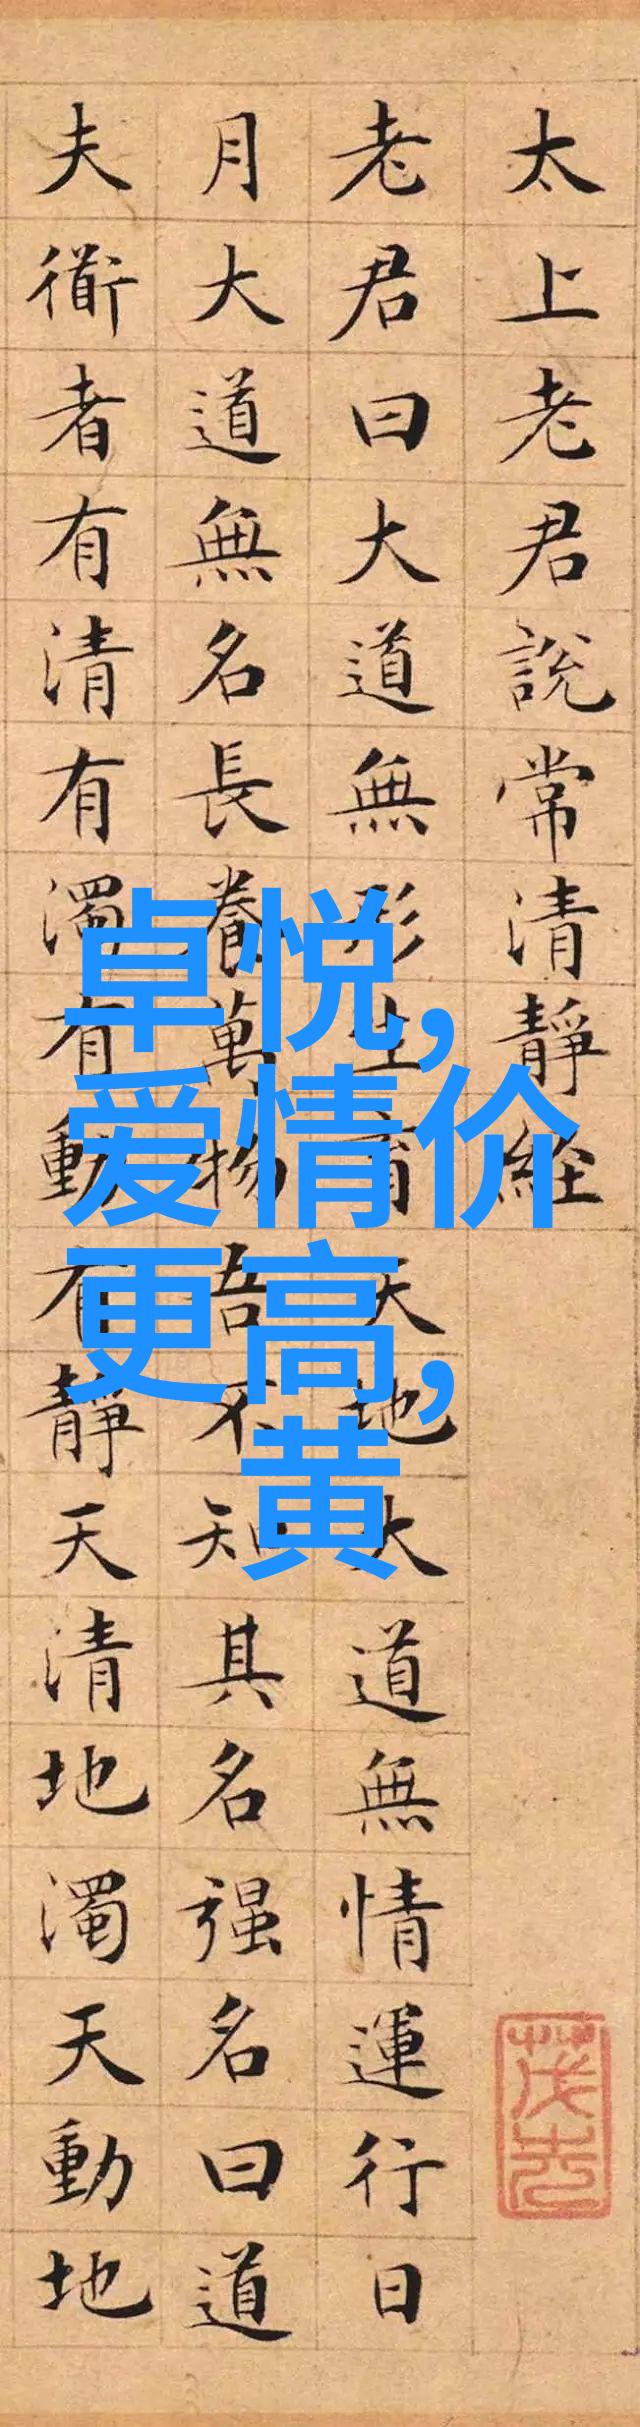 太上老君說常清靜経
老君曰大道無形生育天地大道無情運行日
月大道無名長養萬物吾不知其名强名曰道
夫衜者有清有濁有動有靜天清地濁天動地
卓悦,
爱情价
更高,
黄